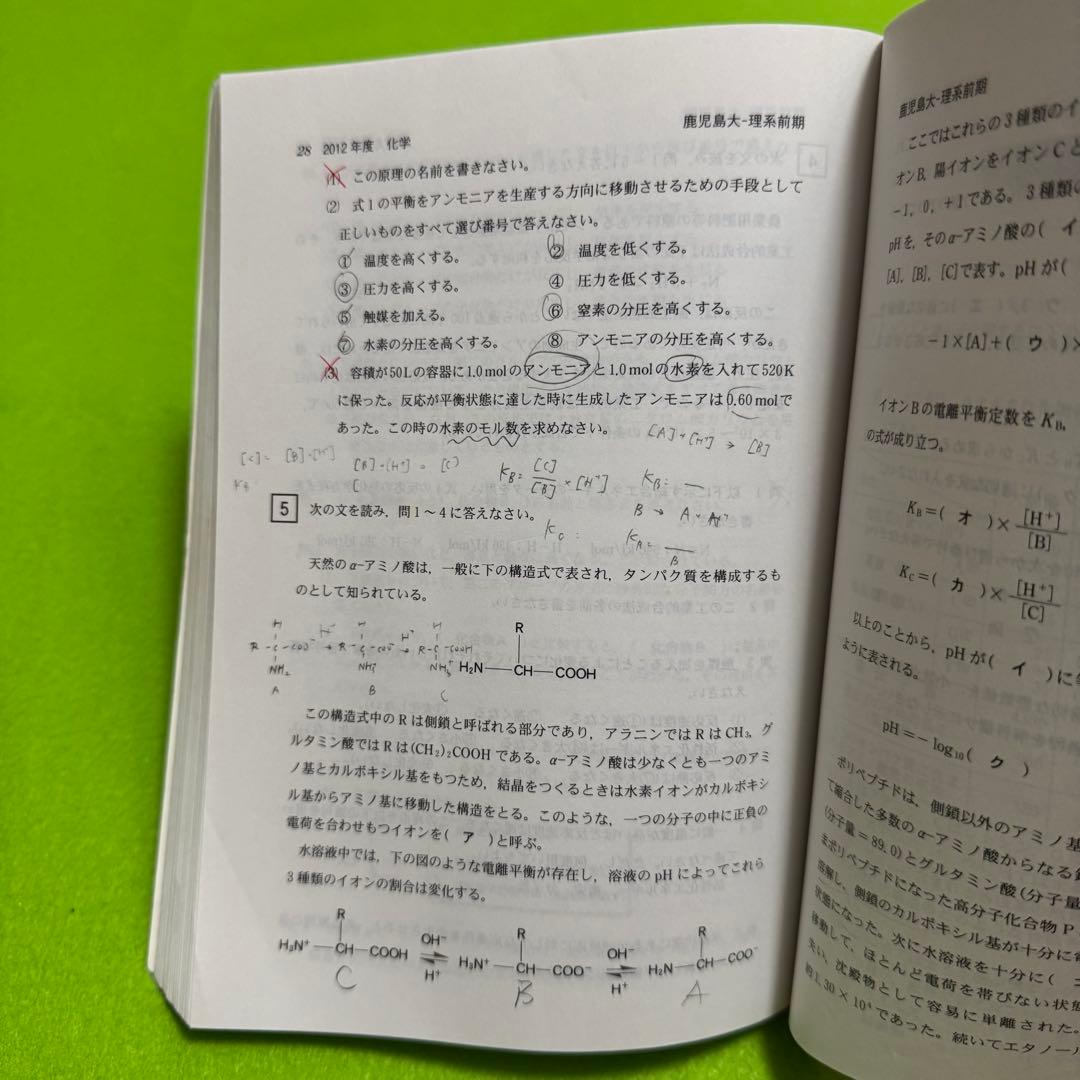 鹿児島大-理系前期
28 2012年度 化学
(1) この原理の名前を書きなさい。
(2) 式1の平衡をアンモニアを生産する方向に移動させるための手段として
正しいものをすべて選び番号で答えなさい。
① 温度を高くする。 ② 温度を低くする。
③ 圧力を高くする。 ④ 圧力を低くする。
⑤ 触媒を加える。 ⑥ 窒素の分圧を高くする。
⑦ 水素の分圧を高くする。 ⑧ アンモニアの分圧を高くする。
(3) 容積が50Lの容器に1.0molのアンモニアと1.0molの水素を入れて520K
に保った。反応が平衡状態に達した時に生成したアンモニアは0.60molで
あった。この時の水素のモル数を求めなさい。
[A]+[H⁺] → [B]
[C]= [B]·[H⁺] [B]·[H⁺] = [C] KB= [C]/[B] ×[H⁺] KB=
5 次の文を読み，問1～4に答えなさい。
天然のα-アミノ酸は，一般に下の構造式で表され，タンパク質を構成するも
のとして知られている。
R
H₂N—CH—COOH
A B C
この構造式中のRは側鎖と呼ばれる部分であり，アラニンではRはCH₃，グ
ルタミン酸ではRは(CH₂)₂COOHである。α-アミノ酸は少なくとも一つのアミ
ノ基とカルボキシル基をもつため，結晶をつくるときは水素イオンがカルボキシ
ル基からアミノ基に移動した構造をとる。このような，一つの分子の中に正負の
電荷を合わせもつイオンを( ア )と呼ぶ。
水溶液中では，下の図のような電離平衡が存在し，溶液のpHによってこれら
3種類のイオンの割合は変化する。
R R R
H₃N⁺—CH—COOH OH⁻ ⇌ H⁺ H₃N⁺—CH—COO⁻ OH⁻ ⇌ H⁺ H₂N—CH—COO⁻
C B A
鹿児島大-理系前期
ここではこれらの3種類のイ
オンB，陽イオンをイオンCと
-1，0，+1である。3種類の
pHを，そのα-アミノ酸の( イ
[A]，[B]，[C]で表す。pHが(
-1×[A]+( ウ )×
イオンBの電離平衡定数をKB，
の式が成り立つ。
KB=( オ )× [H⁺]/[B]
KC=( カ )× [H⁺]/[C]
以上のことから，pHが( イ )に
ように表される。
pH=-log₁₀( ク )
ポリペプチドは，側鎖以外のアミノ基
て縮合した多数のα-アミノ酸からなる
(分子量=89.0)とグルタミン酸(分子量
まポリペプチドになった高分子化合物P
溶解し，側鎖のカルボキシル基が十分に
状態になった。次に水溶液を十分に(
移動して，ほとんど電荷を帯びない状態
失い，沈殿物として容易に単離された。
約1.30×10⁴であった。続いてエタノール